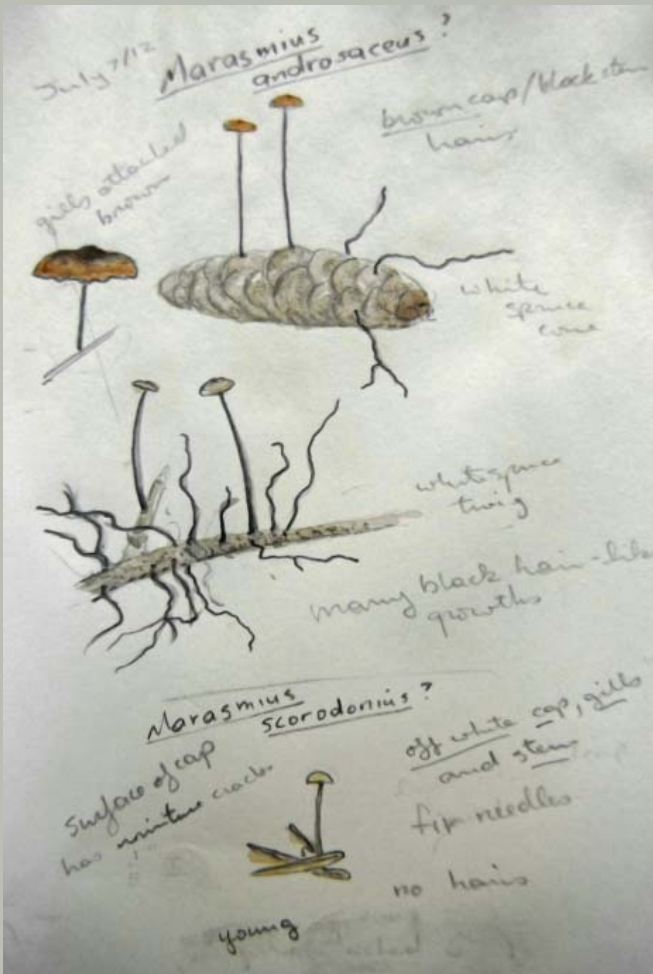 July 7/12
Marasmius
androsaceus?
brown cap/black stem
hairs
gills attached
brown
white
spruce
cone
white spruce
twig
many black hair-like
growths
Marasmius
scorodonius?
Surface of cap
has
off white cap, gills
and stem
fir needles
no hairs
young